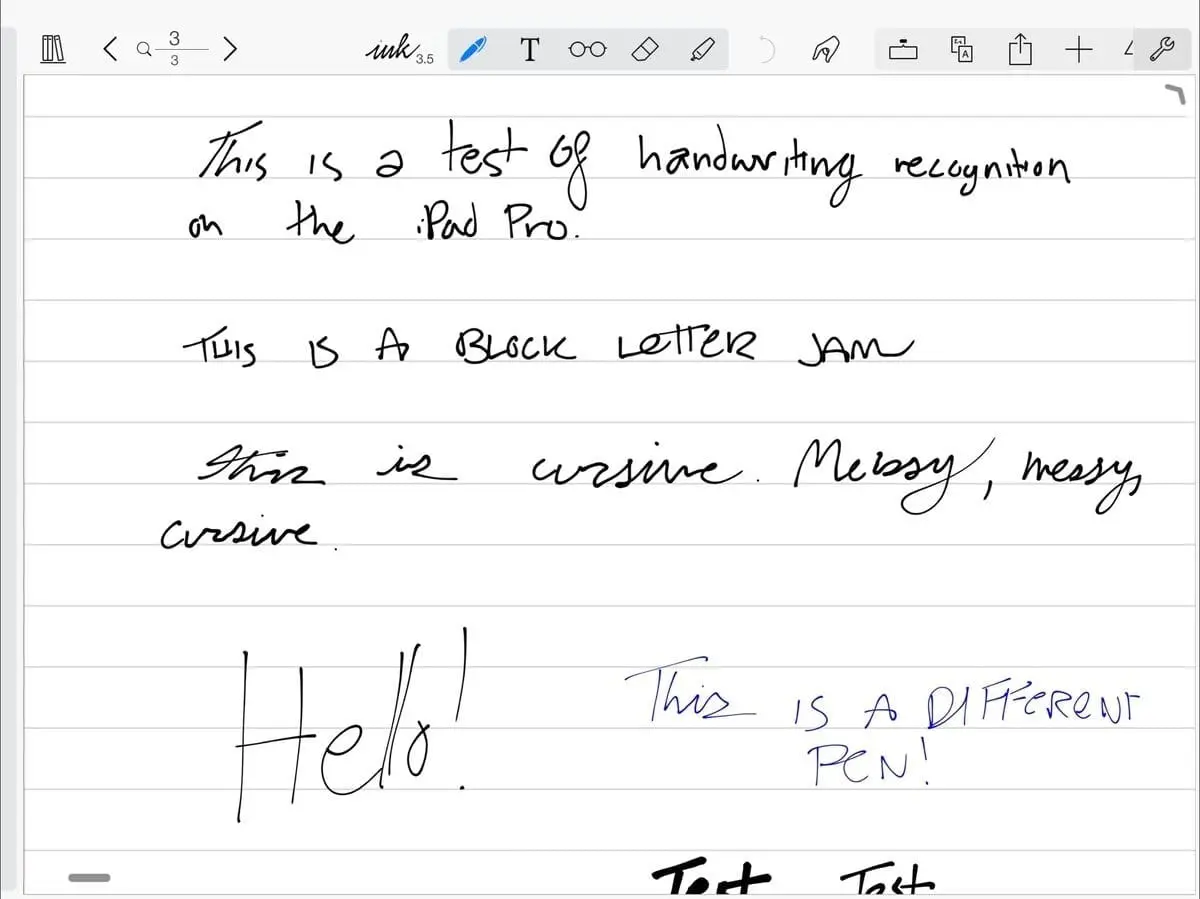 3
3
ink 3.5
T
This is a test of handwriting recognition
on the iPad Pro.
THIS IS A BLOCK LETTER JAM
This is cursive. Messy, messy,
cursive.
Hello!
This IS A DIFFERENT
PEN!
Test Test